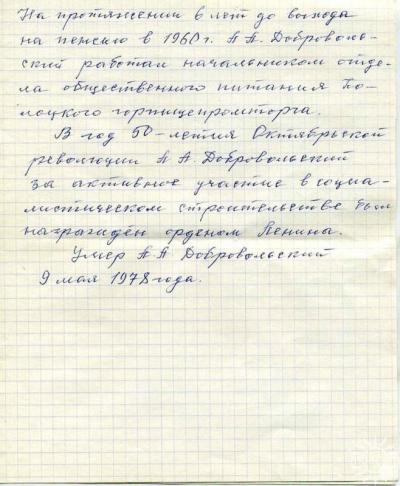 На протяжении 6 лет до выхода
на пенсию в 1960 г. А А. Доброволь-
ский работал начальником отде-
ла общественного питания По-
лоцкого горпищепромторга.
В год 50-летия Октябрьской
революции А А Добровольский
за активное участие в социа-
листическом строительстве был
награждён орденом Ленина.
Умер А А Добровольский
9 мая 1978 года.